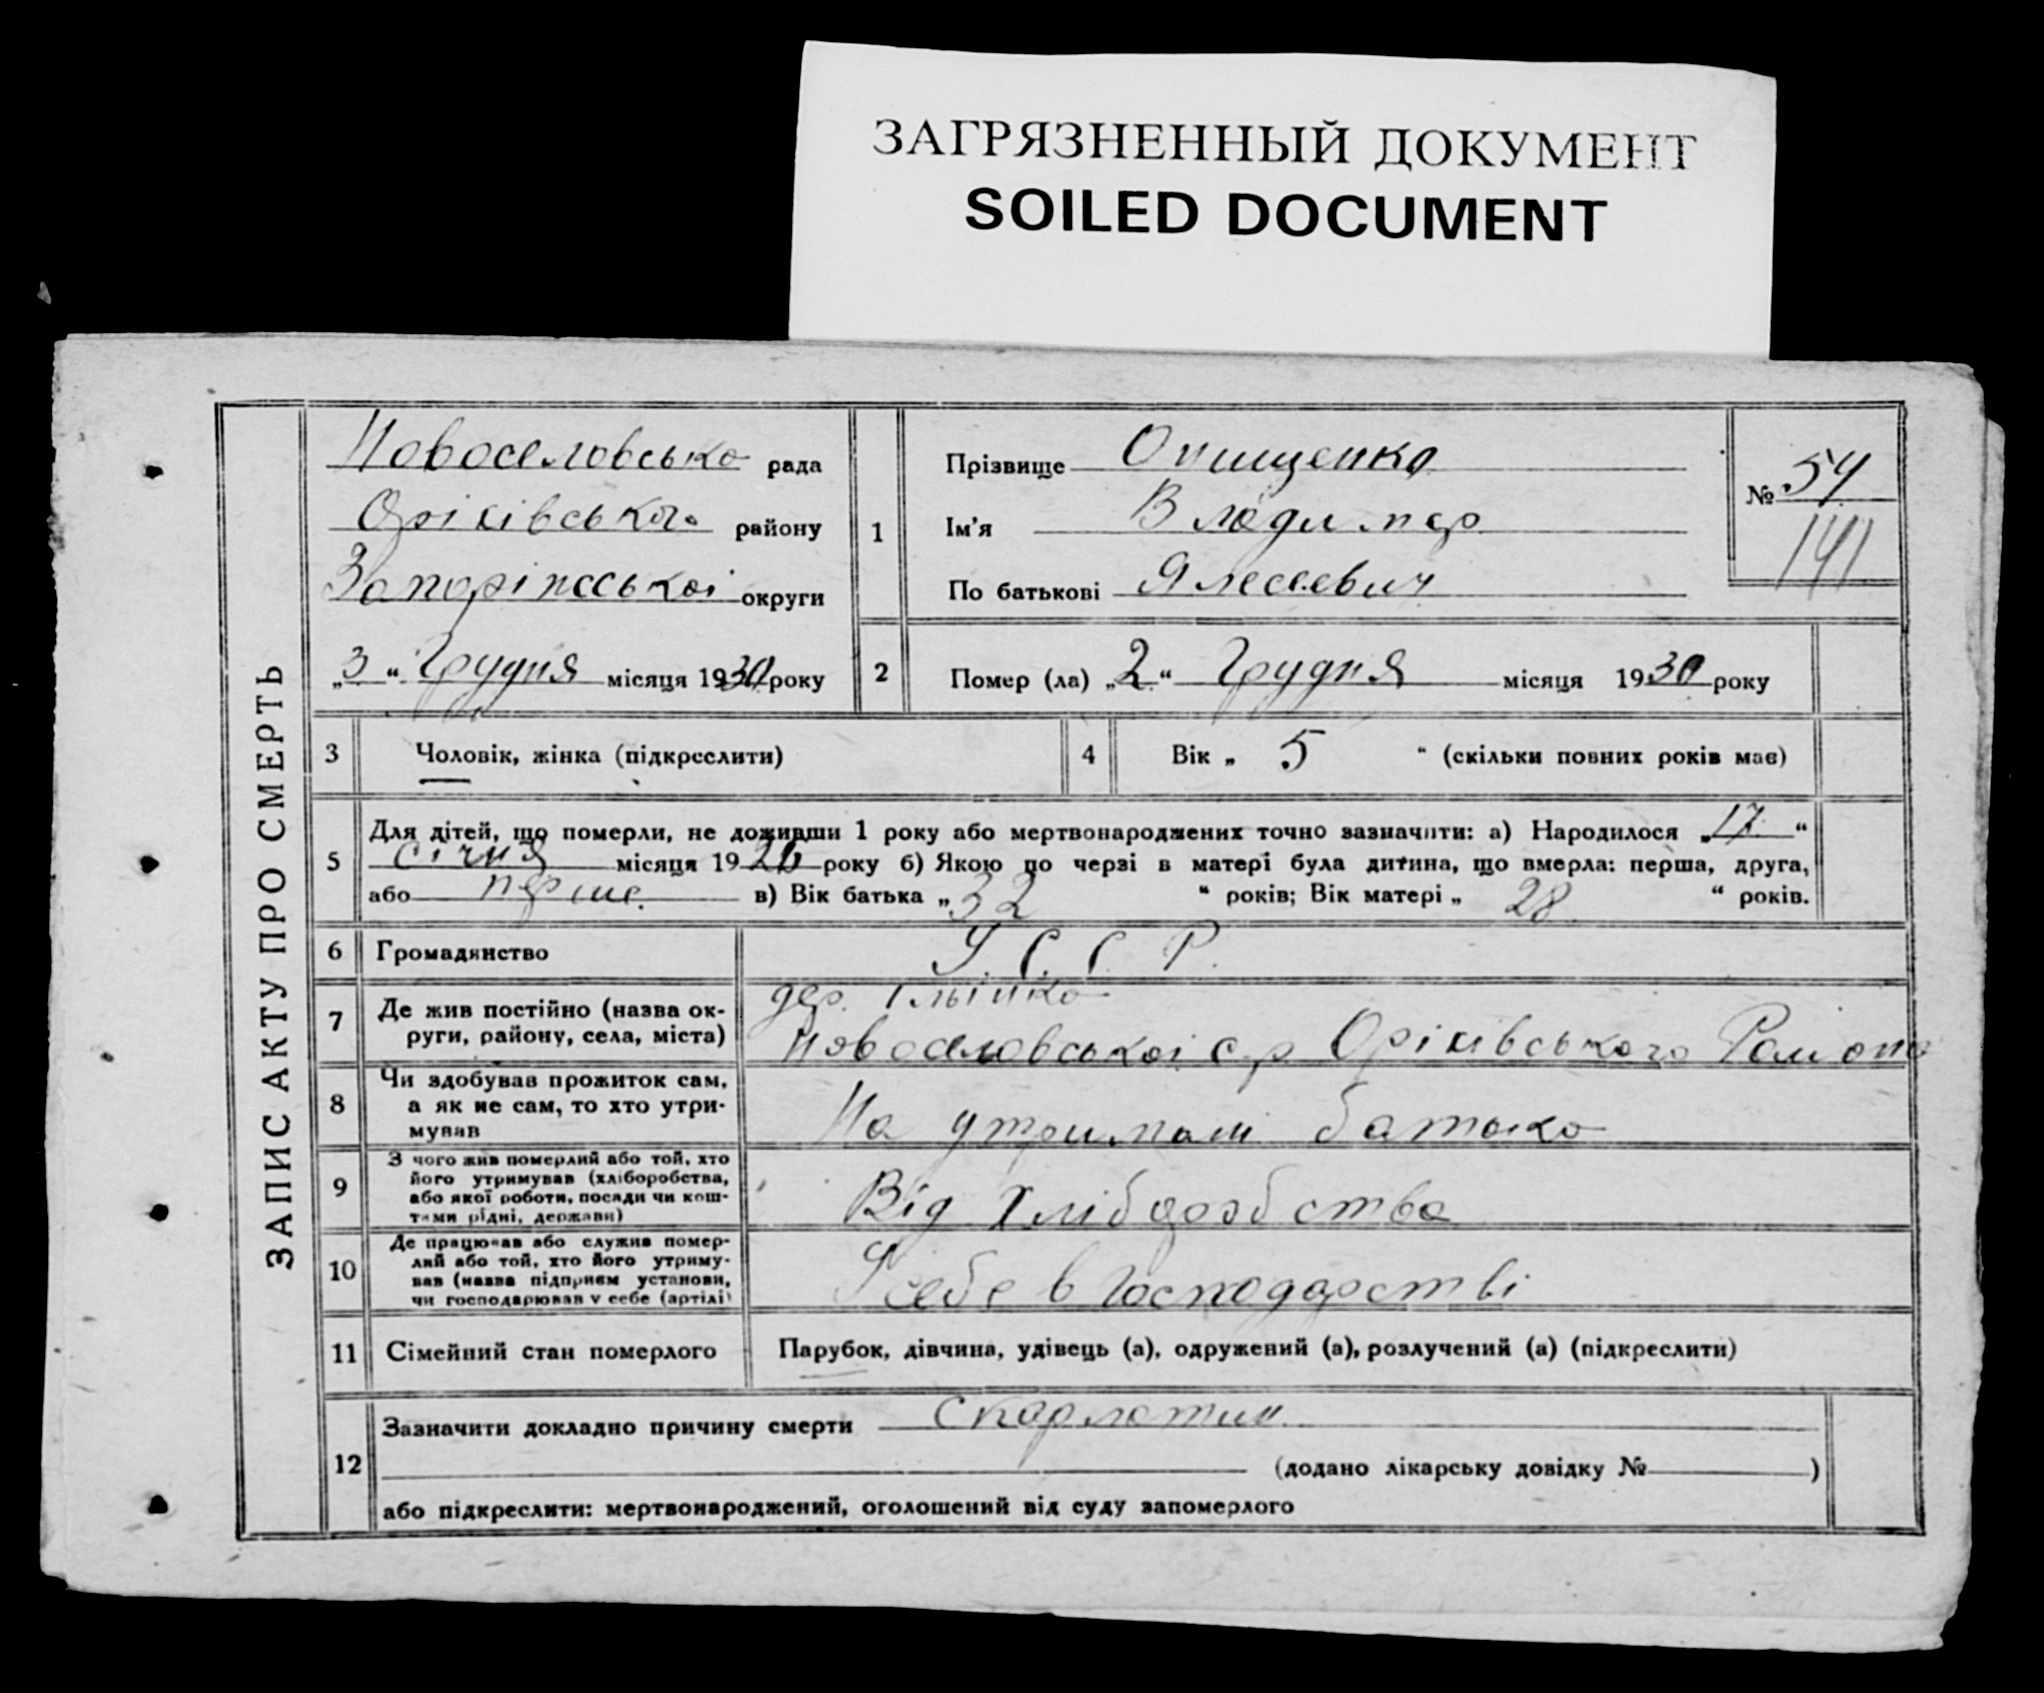 ЗАГРЯЗНЕННЫЙ ДОКУМЕНТ
SOILED DOCUMENT
ЗАПИС АКТУ ПРО СМЕРТЬ
Новоселовсько рада
Оріхівського району
Запоріжської округи
„3“ Грудня місяця 1930 року
1
Прізвище Онищенко
Ім'я Владимер
По батькові
№ 54
141
2
Помер (ла) „2“ Грудня місяця 1930 року
3 Чоловік, жінка (підкреслити)
4 Вік „ 5 “ (скільки повних років має)
5
Для дітей, що померли, не доживши 1 року або мертвонароджених точно зазначити: а) Народилося „17“
січня місяця 1926 року б) Якою по черзі в матері була дитина, що вмерла: перша, друга,
або перше. в) Вік батька „32 “ років; Вік матері „ 28 “ років.
6 Громадянство У. С. С. Р.
7 Де жив постійно (назва ок-
руги, району, села, міста)
дер. Ільінка
Новоселовської с.р Оріхівського Району
8 Чи здобував прожиток сам,
а як не сам, то хто утри-
мував
На утримані батька
9 З чого жив померлий або той, хто
його утримував (хліборобства,
або якої роботи, посади чи кош-
тами рідні, держави)
Від Хліборобства
10 Де працював або служив помер-
лий або той, хто його утриму-
вав (назва підприєм установи,
чи господарював у себе (артілі)
У себе в господарстві
11 Сімейний стан померлого Парубок, дівчина, удівець (а), одружений (а), розлучений (а) (підкреслити)
12
Зазначити докладно причину смерти скарлатин
(додано лікарську довідку № )
або підкреслити: мертвонароджений, оголошений від суду запомерлого